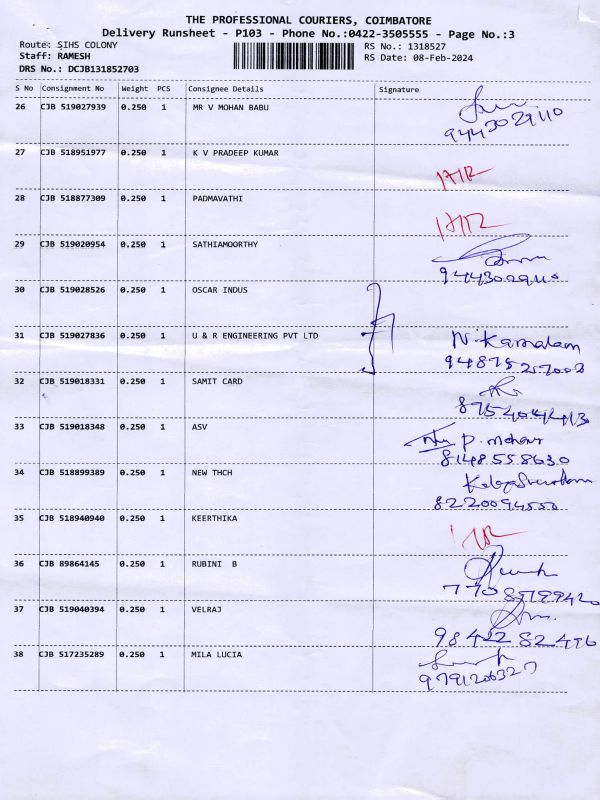 THE PROFESSIONAL COURIERS, COIMBATORE
Delivery Runsheet - P103 - Phone No.:0422-3505555 - Page No.:3
Route: SIHS COLONY
RS No.: 1318527
Staff: RAMESH
RS Date: 08-Feb-2024
DRS No.: DCJB131852703
S No Consignment No Weight PCS Consignee Details Signature
26 CJB 519027939 0.250 1 MR V MOHAN BABU
9443029110
27 CJB 518951977 0.250 1 K V PRADEEP KUMAR
28 CJB 518877309 0.250 1 PADMAVATHI
29 CJB 519020954 0.250 1 SATHIAMOORTHY
9443029110
30 CJB 519028526 0.250 1 OSCAR INDUS
31 CJB 519027836 0.250 1 U & R ENGINEERING PVT LTD N. Kamalam
32 CJB 519018331 0.250 1 SAMIT CARD
33 CJB 519018348 0.250 1 ASV P. mohan
8148558630
34 CJB 518899389 0.250 1 NEW THCH
8220094550
35 CJB 518940940 0.250 1 KEERTHIKA
36 CJB 89864145 0.250 1 RUBINI B
37 CJB 519040394 0.250 1 VELRAJ
98422 82496
38 CJB 517235289 0.250 1 MILA LUCIA
9791206327